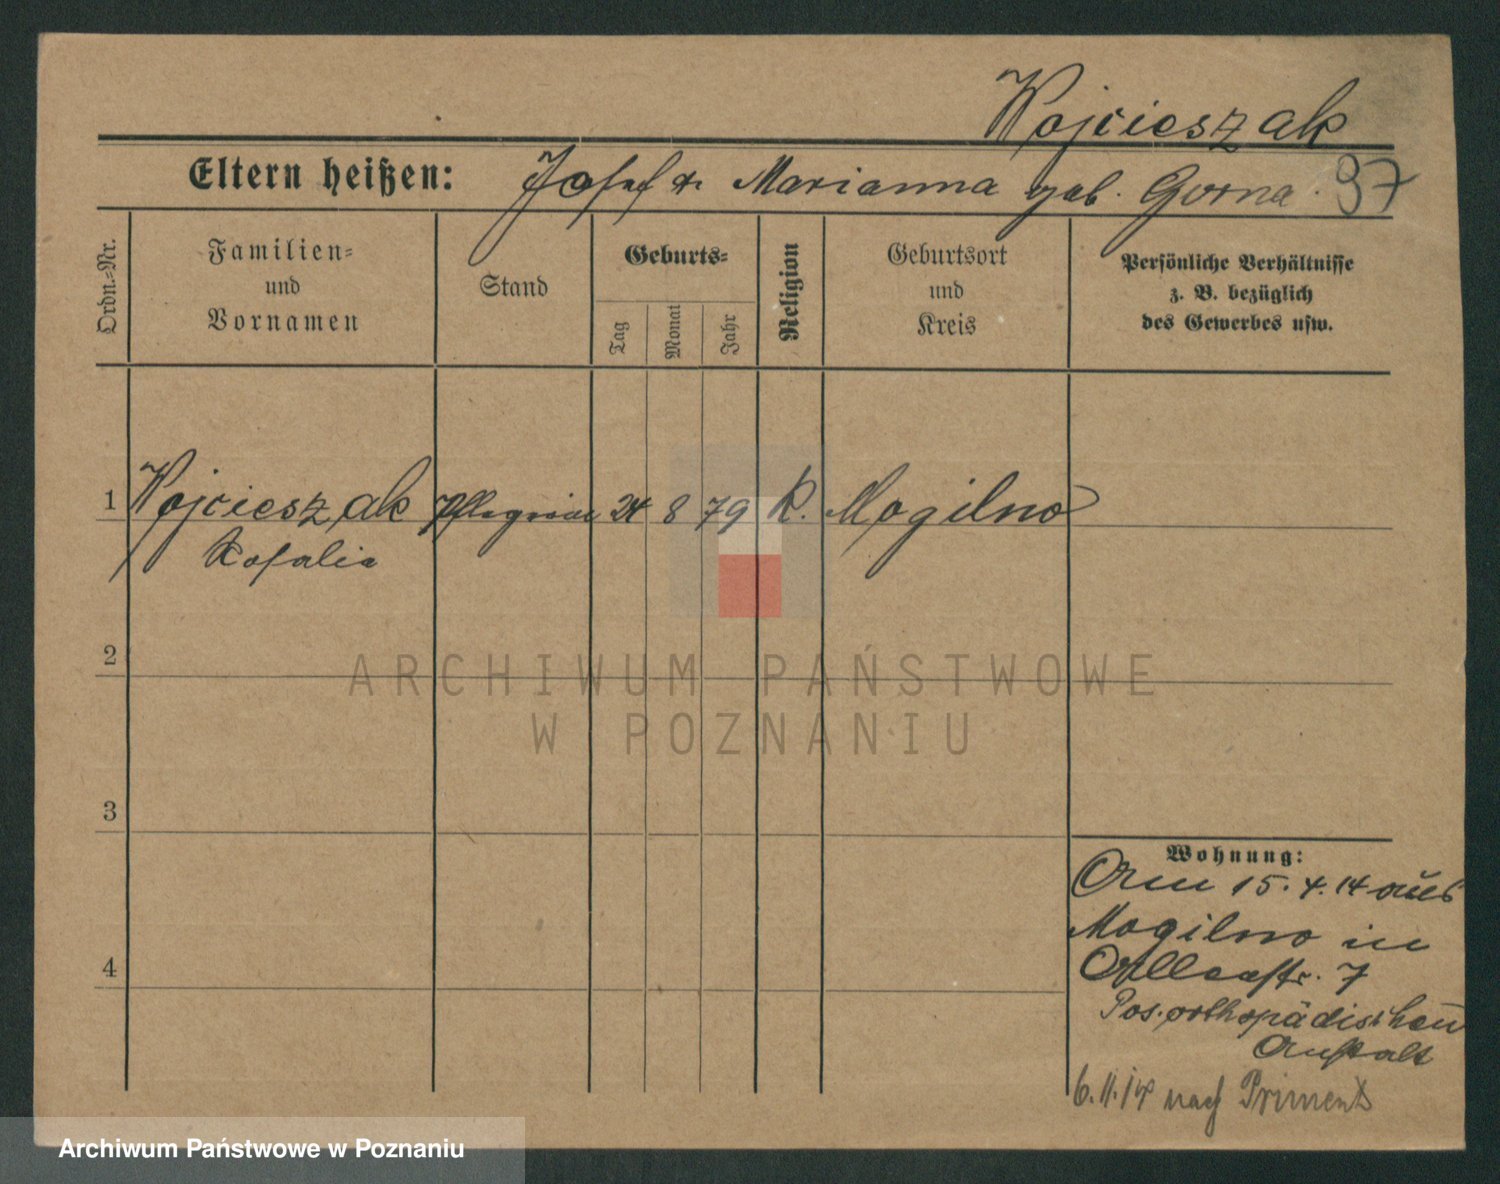 Wojcieszak
Eltern heißen: Josef u. Marianna geb. Gorna. 97
Ordn.-Nr.
Familien-
und
Vornamen
Stand
Geburts-
Tag
Monat
Jahr
Religion
Geburtsort
und
Kreis
Persönliche Verhältnisse
z. B. bezüglich
des Gewerbes usw.
1 Wojcieszak 24 8 79 K. Mogilno
Rosalia
2
3
4
Wohnung:
Am 15.4.14 aus
Mogilno in
7
Pos. orthopädischen
Anstalt
6.11.14 nach Priment
ARCHIWUM PAŃSTWOWE
W POZNANIU
Archiwum Państwowe w Poznaniu